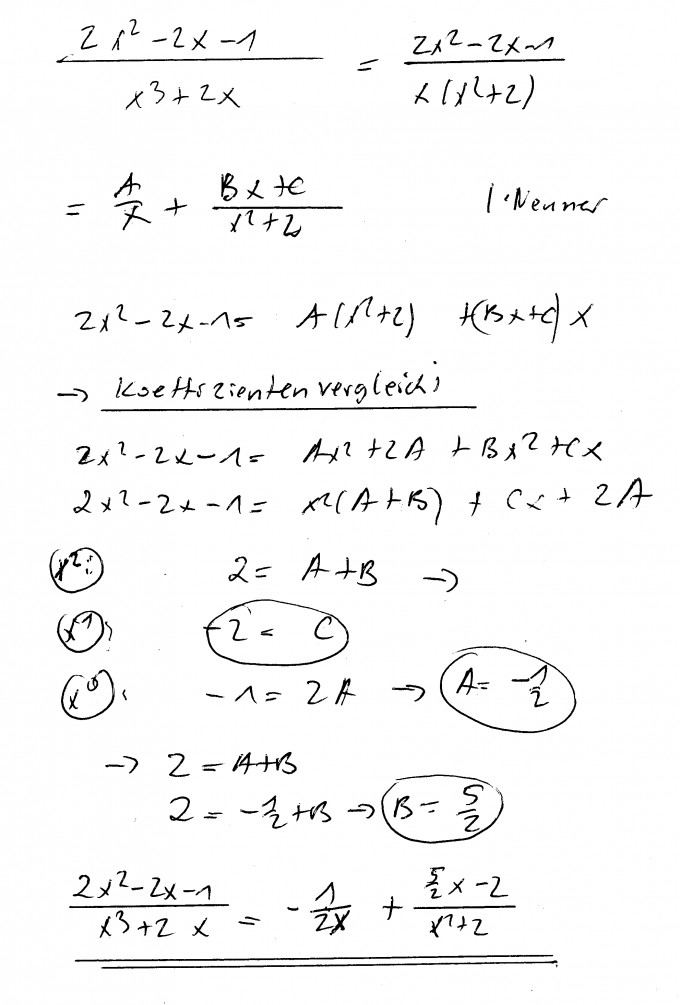 (2x²-2x-1)/(x³+2x) = (2x²-2x-1)/(x(x²+2))
= A/x + (Bx+C)/(x²+2) | ·Nenner
2x²-2x-1= A(x²+2) +(Bx+C)x
→ Koeffizientenvergleich:
2x²-2x-1= Ax²+2A +Bx²+Cx
2x²-2x-1= x²(A+B) + Cx + 2A
x²: 2= A+B →
x¹: -2= C
x⁰: -1= 2A → A= -1/2
→ 2=A+B
2= -1/2+B → B= 5/2
(2x²-2x-1)/(x³+2x) = -1/(2x) + (5/2x-2)/(x²+2)